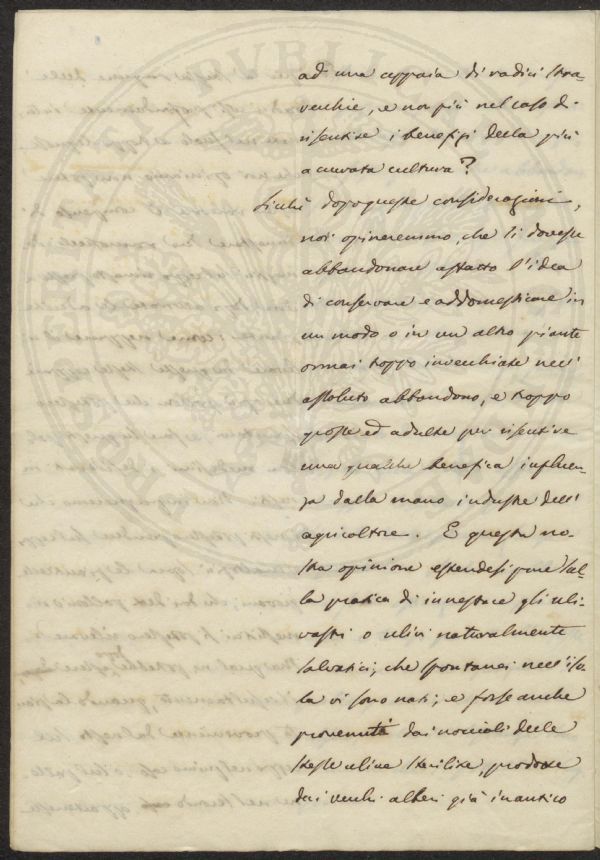 ad una ceppaia di radici stra-
vecchie, e non più nel caso di
risentire i benefizi della più
accurata cultura?
Sicchè dopo queste considerazioni,
noi opineremmo, che si dovesse
abbandonare affatto l'idea
di conservare e addomesticare in
un modo o in un altro piante
ormai troppo invecchiate nell'
assoluto abbandono, e troppo
grosse ed adulte per risentire
una qualche benefica influen-
za dalla mano industre dell'
agricoltore. E questa no-
stra opinione estendesi pure sul-
la pratica di innestare gli uli-
vastri o ulivi naturalmente
salvatici, che spontanei nell'iso-
la vi sono nati; e forse anche
provenuti dai noccioli delle
stesse ulive sterilite, prodotte
dai vecchi alberi già in antico